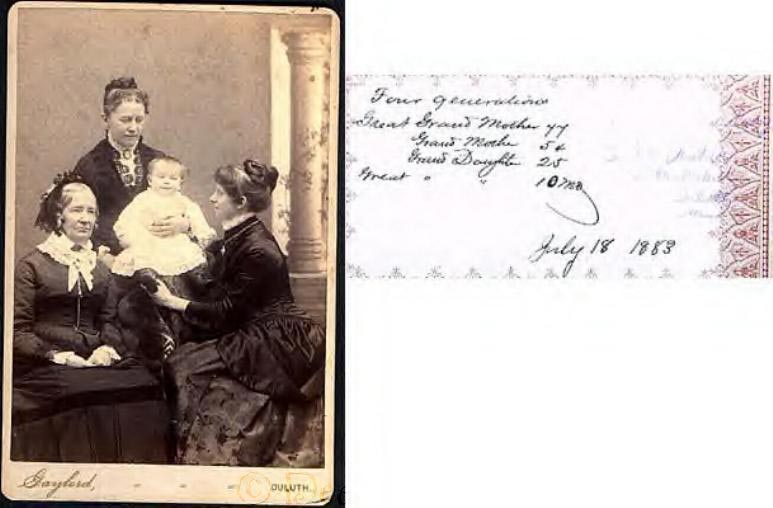 Four generations
Great Grand Mother 77
Grand Mother 54
Grand Daughter 25
Great " " 10 mo
July 18 1883
Gaylord,
DULUTH.